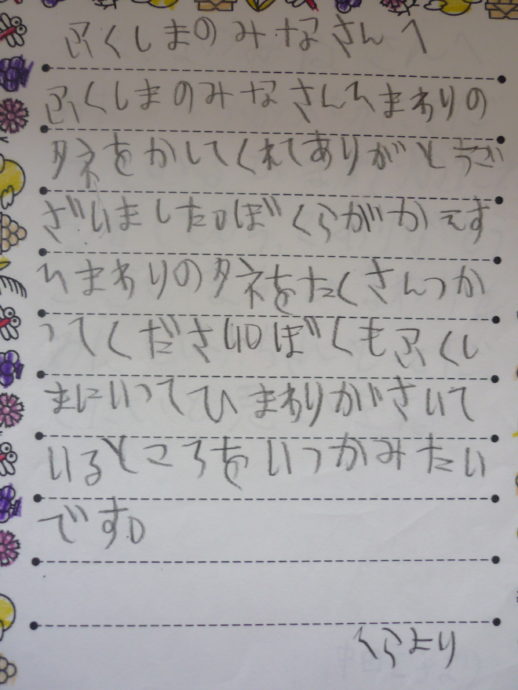 ふくしまのみなさんへ
ふくしまのみなさんひまわりの
タネをかしてくれてありがとうご
ざいました。ぼくらがかえす
ひまわりのタネをたくさんつか
ってください。ぼくもふくし
まにいってひまわりがさいて
いるところをいつかみたい
です。
くらより